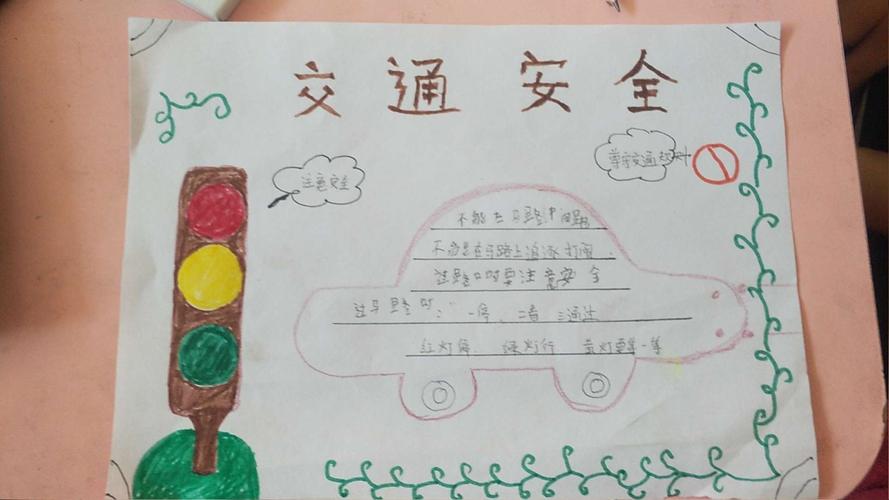 交通安全
注意安全
遵守交通规则
不能在马路中间跑
不能在马路上追逐打闹.
过路口时要注意安全
过马路时: 一停、二看 三通过
红灯停、绿灯行 黄灯要等一等